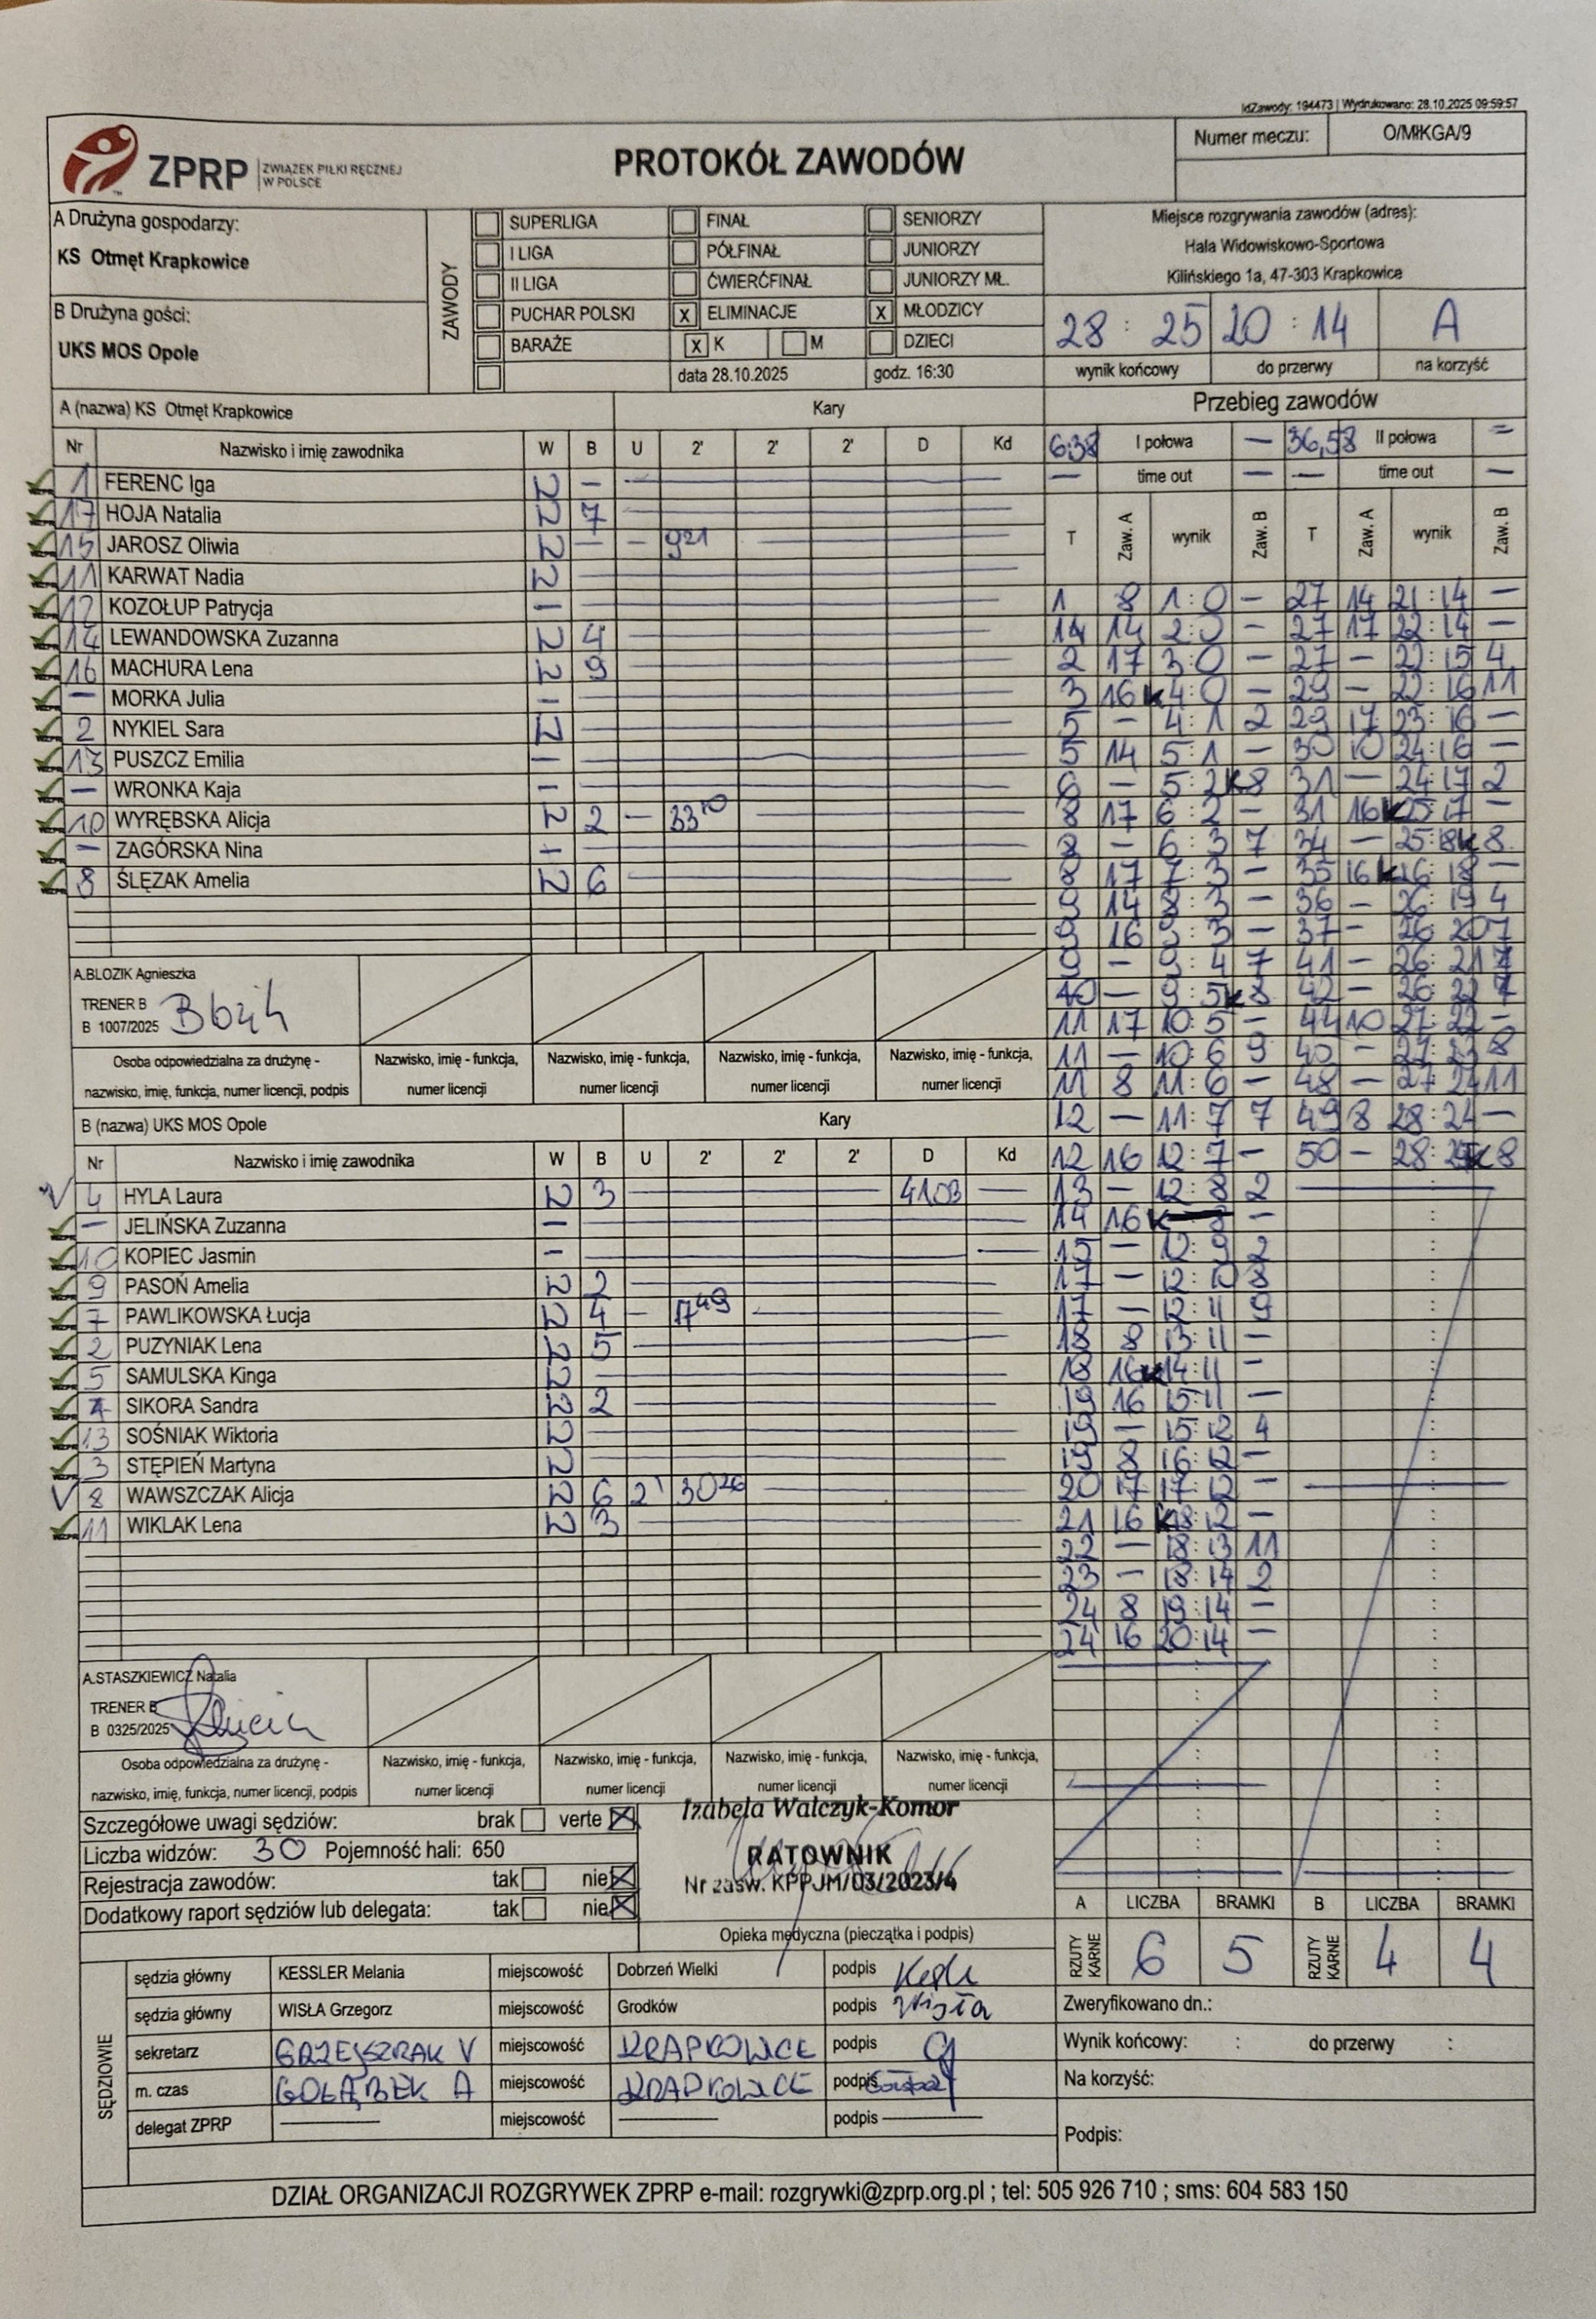 IdZawody: 194473 | Wydrukowano: 28.10.2025 09:59:57
ZPRP ZWIĄZEK PIŁKI RĘCZNEJ W POLSCE
PROTOKÓŁ ZAWODÓW
Numer meczu: O/MłKGA/9
A Drużyna gospodarzy:
KS Otmęt Krapkowice
B Drużyna gości:
UKS MOS Opole
ZAWODY
SUPERLIGA FINAŁ SENIORZY
I LIGA PÓŁFINAŁ JUNIORZY
II LIGA ĆWIERĆFINAŁ JUNIORZY MŁ.
PUCHAR POLSKI X ELIMINACJE X MŁODZICY
BARAŻE X K M DZIECI
data 28.10.2025 godz. 16:30
Miejsce rozgrywania zawodów (adres):
Hala Widowiskowo-Sportowa
Kilińskiego 1a, 47-303 Krapkowice
28 : 25 20 : 14 A
wynik końcowy do przerwy na korzyść
A (nazwa) KS Otmęt Krapkowice Kary
Nr Nazwisko i imię zawodnika W B U 2' 2' 2' D Kd
1 FERENC Iga W -
17 HOJA Natalia W 7
15 JAROSZ Oliwia W - - 9 21
11 KARWAT Nadia W
12 KOZOŁUP Patrycja -
14 LEWANDOWSKA Zuzanna W 4
16 MACHURA Lena W 9
- MORKA Julia -
2 NYKIEL Sara W
13 PUSZCZ Emilia -
- WRONKA Kaja -
10 WYRĘBSKA Alicja W 2 - 33 10
- ZAGÓRSKA Nina -
8 ŚLĘZAK Amelia W 6
A.BLOZIK Agnieszka
TRENER B
B 1007/2025
Osoba odpowiedzialna za drużynę -
nazwisko, imię, funkcja, numer licencji, podpis
Nazwisko, imię - funkcja, numer licencji
Nazwisko, imię - funkcja, numer licencji
Nazwisko, imię - funkcja, numer licencji
Nazwisko, imię - funkcja, numer licencji
B (nazwa) UKS MOS Opole Kary
Nr Nazwisko i imię zawodnika W B U 2' 2' 2' D Kd
4 HYLA Laura W 3 41 03
- JELIŃSKA Zuzanna -
10 KOPIEC Jasmin -
9 PASOŃ Amelia W 2
7 PAWLIKOWSKA Łucja W 4 - 17 49
2 PUZYNIAK Lena W 5
5 SAMULSKA Kinga W
SIKORA Sandra W 2
13 SOŚNIAK Wiktoria W
3 STĘPIEŃ Martyna W
8 WAWSZCZAK Alicja W 6 2' 30 26
11 WIKLAK Lena W 3
A.STASZKIEWICZ Natalia
TRENER B
B 0325/2025
Osoba odpowiedzialna za drużynę -
nazwisko, imię, funkcja, numer licencji, podpis
Nazwisko, imię - funkcja, numer licencji
Nazwisko, imię - funkcja, numer licencji
Nazwisko, imię - funkcja, numer licencji
Nazwisko, imię - funkcja, numer licencji
Przebieg zawodów
6:38 I połowa - 36,58 II połowa =
- time out - - time out -
T Zaw. A wynik Zaw. B T Zaw. A wynik Zaw. B
1 8 1:0 - 27 14 21:14 -
14 14 2:0 - 27 17 22:14 -
2 17 3:0 - 27 - 22:15 4
3 16 K 4:0 - 29 - 22:16 11
5 - 4:1 2 29 17 23:16 -
5 14 5:1 - 30 10 24:16 -
6 - 5:2 K 8 31 - 24:17 2
8 17 6:2 - 31 16 K 25:17 -
8 - 6:3 7 34 - 25:18 K 8
8 17 7:3 - 35 16 K 26:18 -
9 14 8:3 - 36 - 26:19 4
9 16 9:3 - 37 - 26:20 7
9 - 9:4 7 41 - 26:21
10 - 9:5 K 8 42 - 26:22
11 17 10:5 - 44 10 27:22 -
11 - 10:6 9 - 27:23 8
11 8 11:6 - 48 - 27:24 11
12 - 11:7 7 49 8 28:24 -
12 16 12:7 - 50 - 28:25 K 8
13 - 12:8 2
14 16 K -
15 - 12:9 2
17 - 12:10 8
17 - 12:11 9
18 8 13:11 -
18 16 K 14:11 -
19 16 15:11 -
19 - 15:12 4
19 8 16:12 -
20 17 17:12 -
21 16 K 18:12 -
22 - 18:13 11
23 - 18:14 2
24 8 19:14 -
24 16 20:14 -
Szczegółowe uwagi sędziów: brak verte X
Liczba widzów: 30 Pojemność hali: 650
Rejestracja zawodów: tak nie X
Dodatkowy raport sędziów lub delegata: tak nie X
Izabela Walczyk-Komor
RATOWNIK
Nr zaśw. KPPJM/03/2023/4
Opieka medyczna (pieczątka i podpis)
A LICZBA BRAMKI B LICZBA BRAMKI
RZUTY KARNE 6 5 RZUTY KARNE 4 4
SĘDZIOWIE
sędzia główny KESSLER Melania miejscowość Dobrzeń Wielki podpis
sędzia główny WISŁA Grzegorz miejscowość Grodków podpis Wisła
sekretarz GRZEJSZRAK V miejscowość KRAPKOWICE podpis
m. czas GOŁĄBEK A miejscowość KRAPKOWICE podpis
delegat ZPRP miejscowość podpis
Zweryfikowano dn.:
Wynik końcowy: : do przerwy :
Na korzyść:
Podpis:
DZIAŁ ORGANIZACJI ROZGRYWEK ZPRP e-mail: rozgrywki@zprp.org.pl ; tel: 505 926 710 ; sms: 604 583 150